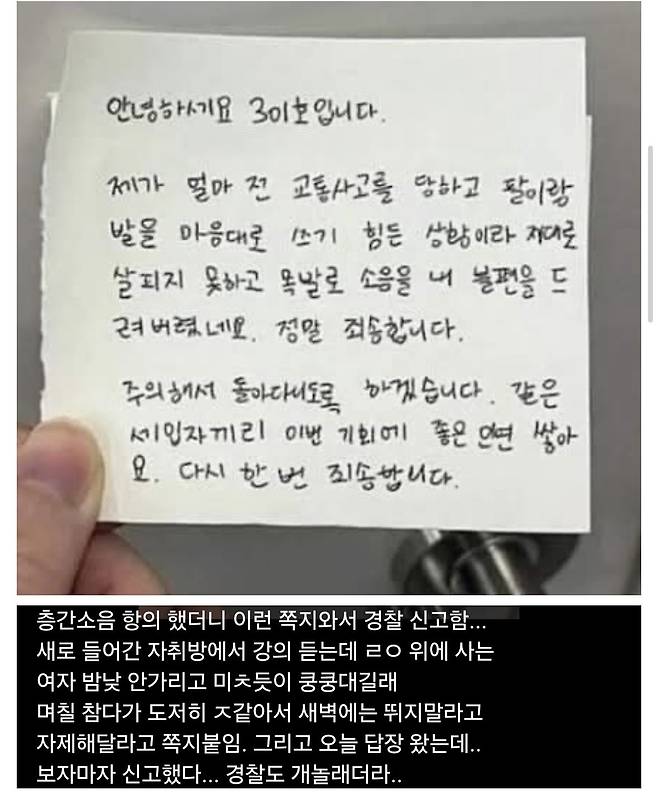 안녕하세요 301호입니다.
제가 얼마 전 교통사고를 당하고 팔이랑
발을 마음대로 쓰기 힘든 상황이라 제대로
살피지 못하고 목발로 소음을 내 불편을 드
려버렸네요. 정말 죄송합니다.
주의해서 돌아다니도록 하겠습니다. 같은
세입자끼리 이번 기회에 좋은 인연 쌓아
요. 다시 한 번 죄송합니다.
층간소음 항의 했더니 이런 쪽지와서 경찰 신고함...
새로 들어간 자취방에서 강의 듣는데 ㄹㅇ 위에 사는
여자 밤낮 안가리고 미ㅊ듯이 쿵쿵대길래
며칠 참다가 도저히 ㅈ같아서 새벽에는 뛰지말라고
자제해달라고 쪽지붙임. 그리고 오늘 답장 왔는데..
보자마자 신고했다... 경찰도 개놀래더라..